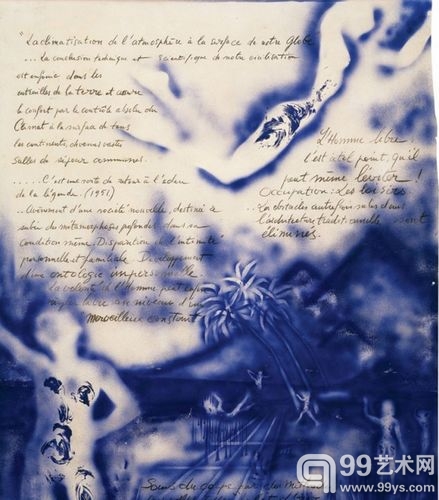 "La climatisation de l'atmosphère à la surface de notre Globe
... la conclusion technique et scientifique de notre civilisation
est enfouie dans les
entrailles de la terre et assure
le confort par le contrôle absolu du
Climat à la surface de tous
les continents, devenus vastes
salles de séjour communes.
..... C'est une sorte de retour à l'éden
de la légende. (1951)
.. Avènement d'une société nouvelle, destinée à
subir des métamorphoses profondes dans sa
condition même. Disparition de l'intimité
personnelle et familiale. Développement
d'une ontologie impersonnelle.
la volonté de l'Homme peut enfin
au niveau d'un
merveilleux constant
L'Homme libre
l'est à tel point, qu'il
peut même léviter !
Occupation : Les loisirs
.. Les obstacles autrefois subis dans
l'architecture traditionnelle sont
éliminés.
99艺术网
www.99ys.com